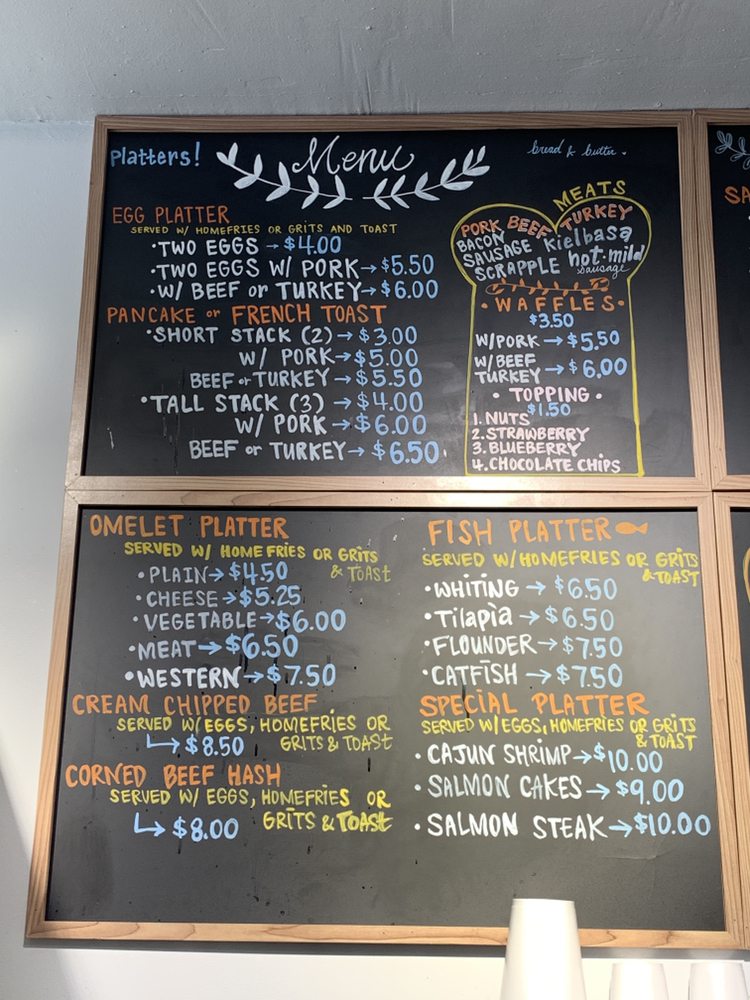 Platters!
Menu
bread & butter
EGG PLATTER
SERVED W/ HOMEFRIES OR GRITS AND TOAST
• TWO EGGS → $4.00
• TWO EGGS W/ PORK → $5.50
• W/ BEEF or TURKEY → $6.00
PANCAKE or FRENCH TOAST
• SHORT STACK (2) → $3.00
W/ PORK → $5.00
BEEF or TURKEY → $5.50
• TALL STACK (3) → $4.00
W/ PORK → $6.00
BEEF or TURKEY → $6.50
MEATS
PORK BEEF TURKEY
BACON
SAUSAGE Kielbasa
SCRAPPLE hot-mild
sausage
• WAFFLES •
$3.50
W/PORK → $5.50
W/BEEF
TURKEY → $6.00
• TOPPING •
$1.50
1. NUTS
2. STRAWBERRY
3. BLUEBERRY
4. CHOCOLATE CHIPS
SA
OMELET PLATTER
SERVED W/ HOMEFRIES OR GRITS
& TOAST
• PLAIN → $4.50
• CHEESE → $5.25
• VEGETABLE → $6.00
• MEAT → $6.50
• WESTERN → $7.50
CREAM CHIPPED BEEF
SERVED W/ EGGS, HOMEFRIES OR
GRITS & TOAST
↳ $8.50
CORNED BEEF HASH
SERVED W/ EGGS, HOMEFRIES OR
GRITS & TOAST
↳ $8.00
FISH PLATTER
SERVED W/HOMEFRIES OR GRITS
& TOAST
• WHITING → $6.50
• Tilapia → $6.50
• FLOUNDER → $7.50
• CATFISH → $7.50
SPECIAL PLATTER
SERVED W/EGGS, HOMEFRIES OR GRITS
& TOAST
• CAJUN SHRIMP → $10.00
• SALMON CAKES → $9.00
• SALMON STEAK → $10.00